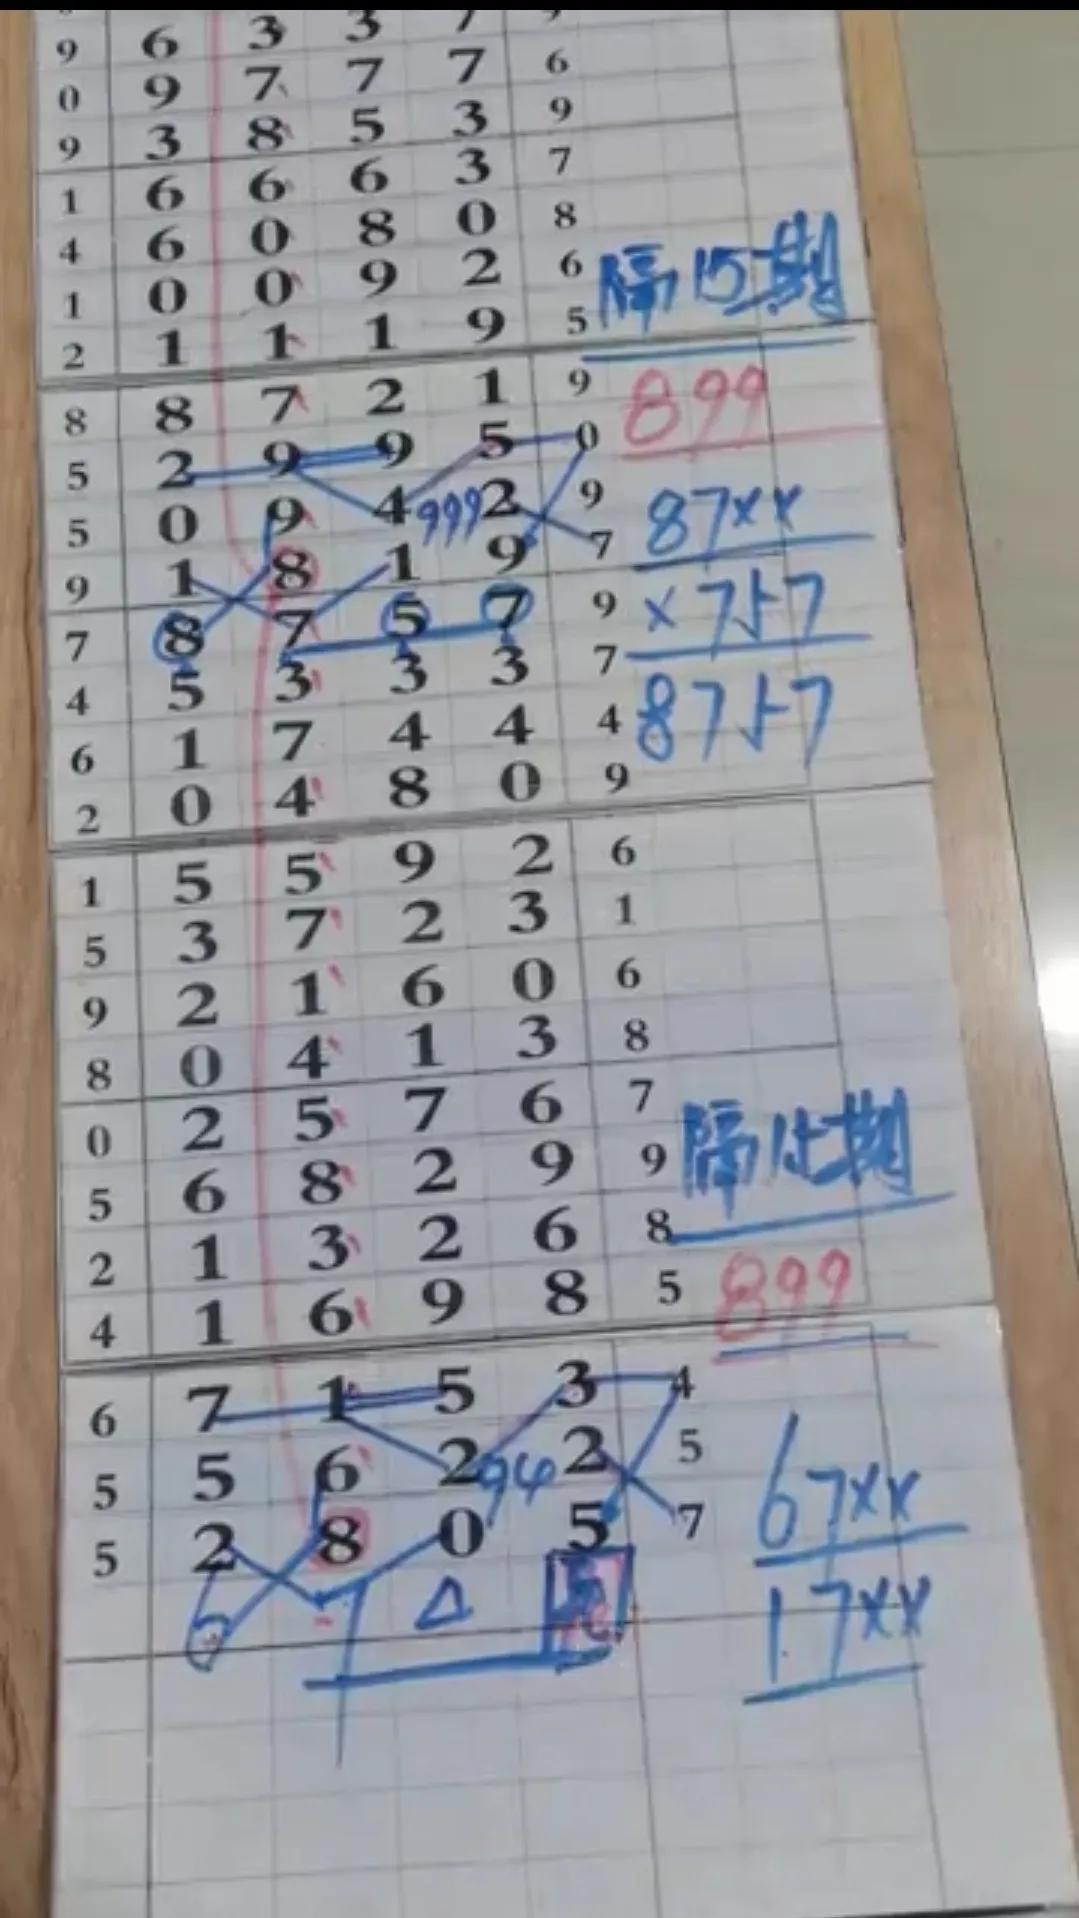 9 6 3 3 7
0 9 7 7 7 6
9 3 8 5 3 9
1 6 6 6 3 7
4 6 0 8 0 8
1 0 0 9 2 6 隔15期
2 1 1 1 9 5
8 8 7 2 1 9 899
5 2 9 9 5 0
5 0 9 4 999 2 9 87××
9 1 8 1 9 7
7 8 7 5 7 9 ×757
4 5 3 3 3 7
6 1 7 4 4 4 8757
2 0 4 8 0 9
1 5 5 9 2 6
5 3 7 2 3 1
9 2 1 6 0 6
8 0 4 1 3 8
0 2 5 7 6 7
5 6 8 2 9 9 隔15期
2 1 3 2 6 8
4 1 6 9 8 5 899
6 7 1 5 3 4
5 5 6 2 2 5 67××
5 2 8 0 5 7
17××